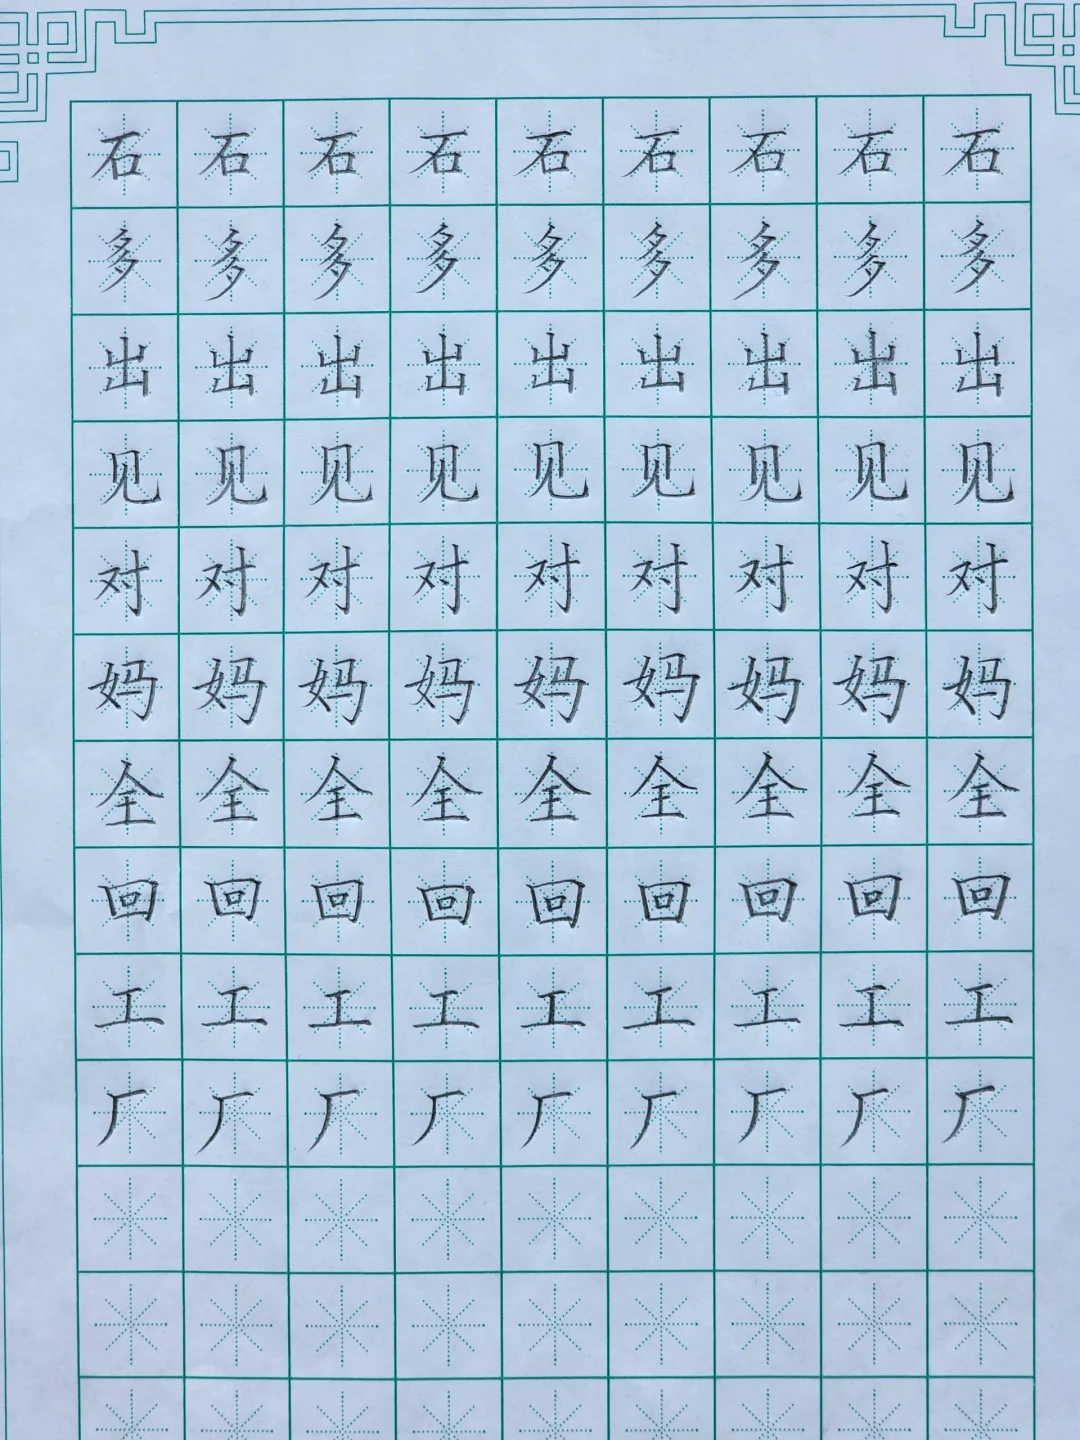 石石石石石石石石石
多多多多多多多多多
出出出出出出出出出
见见见见见见见见见
对对对对对对对对对
妈妈妈妈妈妈妈妈妈
全全全全全全全全全
回回回回回回回回回
工工工工工工工工工
厂厂厂厂厂厂厂厂厂